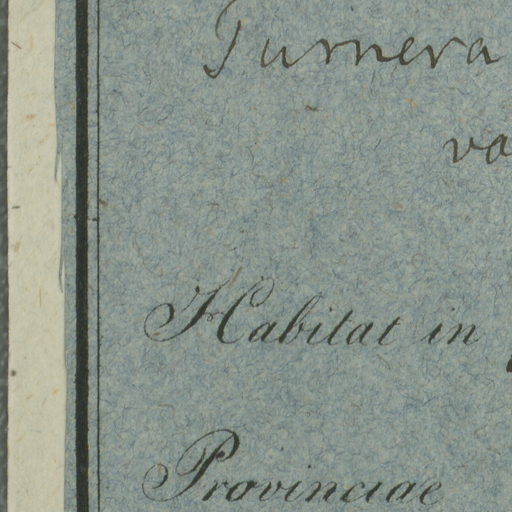 Turnera
Habitat in
Provinciae